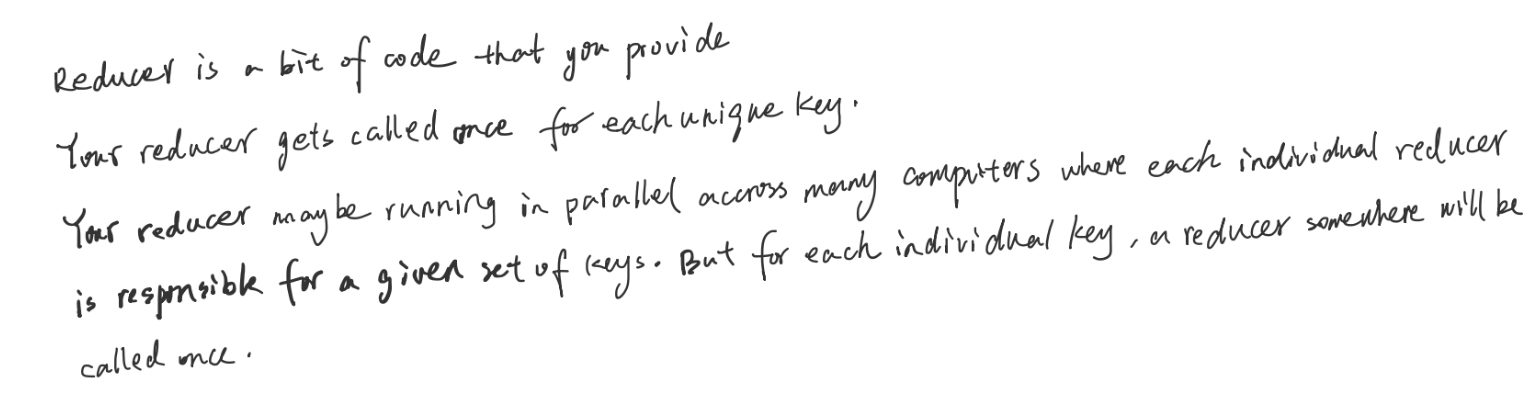 Reducer is a bit of code that you provide
Your reducer gets called once for each unique key.
Your reducer maybe running in parallel accross many computers where each individual reducer
is responsible for a given set of keys. But for each individual key, a reducer somewhere will be
called once.